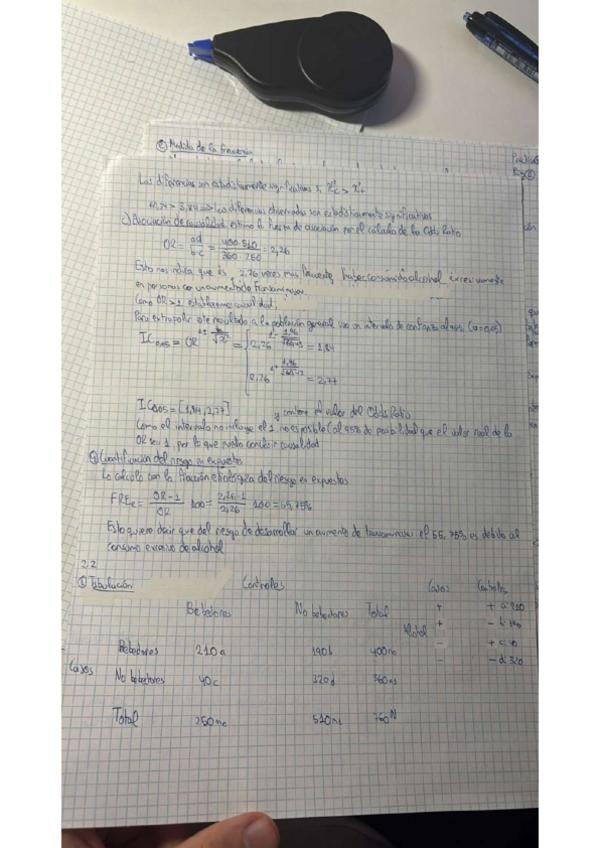 ② Medida de la frecuencia
Las diferencias son estadísticamente significativas si χ²c > χ²t
> 3,84 => Las diferencias observadas son estadísticamente significativas
Asociación de causalidad: estimo la fuerza de asociación por el cálculo de la Odds Ratio
OR = ad / b·c = 400·510 / 360·250 = 2,26
Esto nos indica que es 2,26 veces más frecuente haber consumido alcohol excesivamente
en personas con un aumento de
Como OR > 1 establezco causalidad,
Para extrapolar este resultado a la población general uso un intervalo de confianza al 95% (α=0,05)
IC0,05 = OR
2,26 = 1,84
2,26 = 2,77
IC0,05 = [1,84, 2,77] y contiene el valor del Odds Ratio
Como el intervalo no incluye el 1 no es posible (al 95% de posibilidad que el valor real de la
OR sea 1, por lo que puedo concluir causalidad
Cuantificación del riesgo en expuestos
Lo calculo con la fracción etiológica del riesgo en expuestos
FREe = OR-1 / OR · 100 = 2,26-1 / 2,26 · 100 = 55,75%
Esto quiere decir que del riesgo de desarrollar un aumento de transaminasas el 55,75% es debido al
consumo excesivo de alcohol
2.2
① Tabulación
Controles
Casos Controles
Bebedores No bebedores Total
+ + a 210
+ - b 190
- + c 40
- - d 320
Bebedores 210a 190b 400
Casos
No bebedores 40c 320d 360
Total 250 510 760N